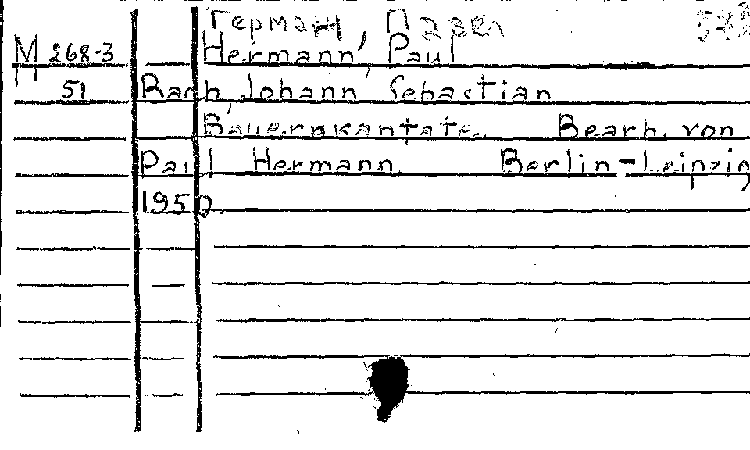 Герман Павел
M 268-3 Hermann, Paul
51 Bach, Johann Sebastian
Bauernkantate. Bearb. von
Paul Hermann. Berlin-Leipzig,
1950.